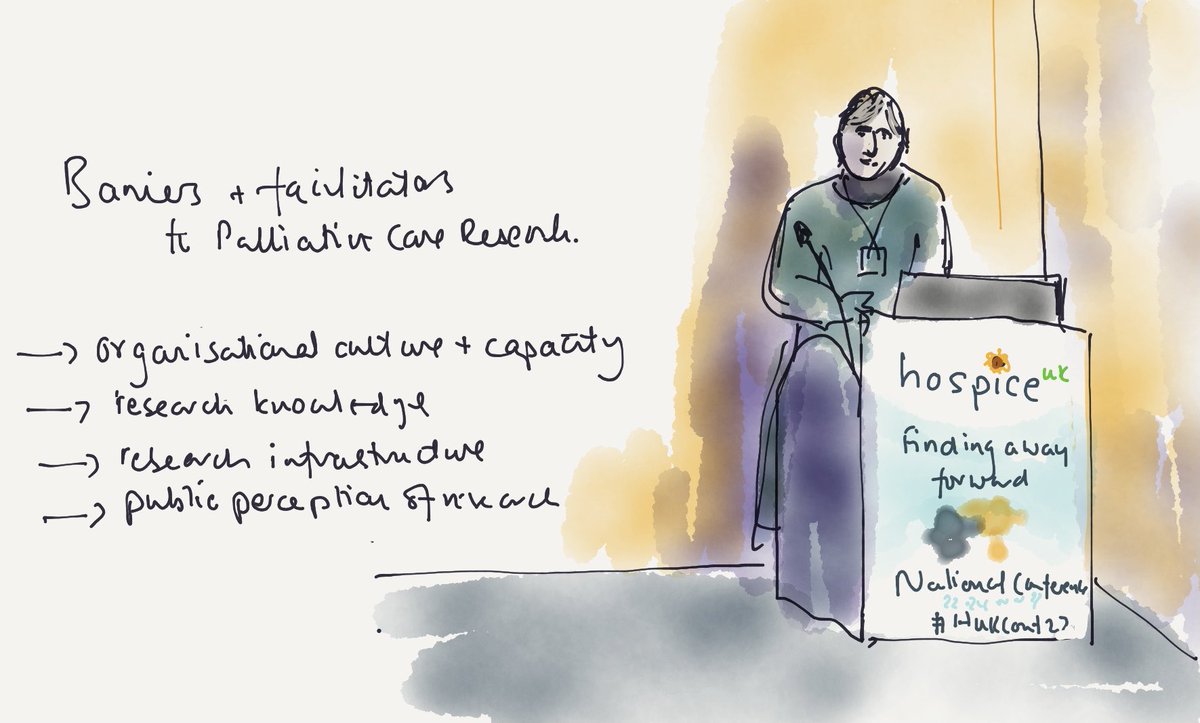 Barriers + facilitators
to Palliative Care Research.
→ organisational culture + capacity
→ research knowledge
→ research infrastructure
→ public perception of research
hospice uk
Finding a way
forward
National Conference
#HUKConf23